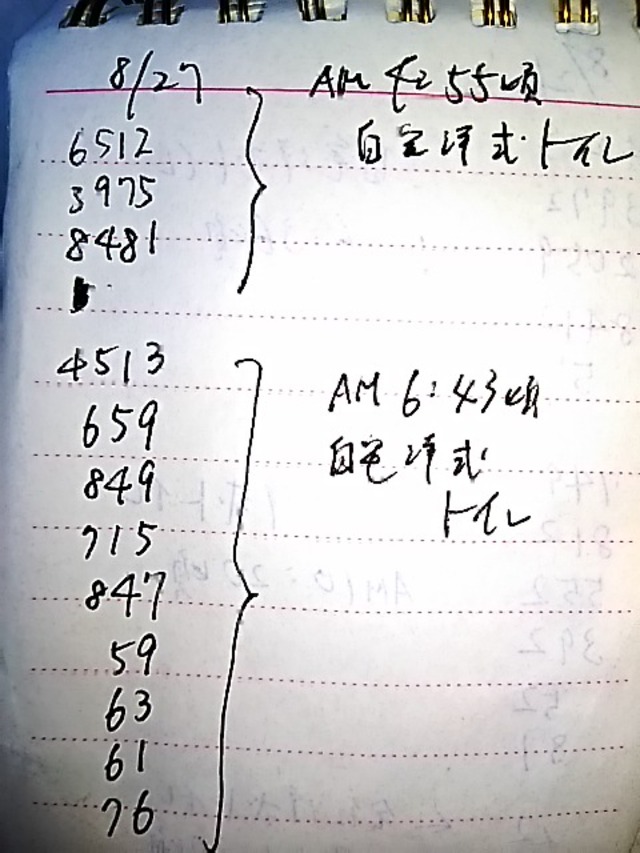 8/27
AM 4:55頃
6512
自宅洋式トイレ
3975
8481
4513
AM 6:43頃
659
自宅洋式
849
トイレ
715
847
59
63
61
76